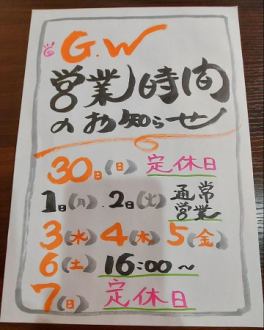 G.W
営業時間
のお知らせ
30日(日) 定休日
1日(月).2日(火) 通常営業
3(水) 4(木) 5(金)
6(土) 16:00〜
7(日) 定休日